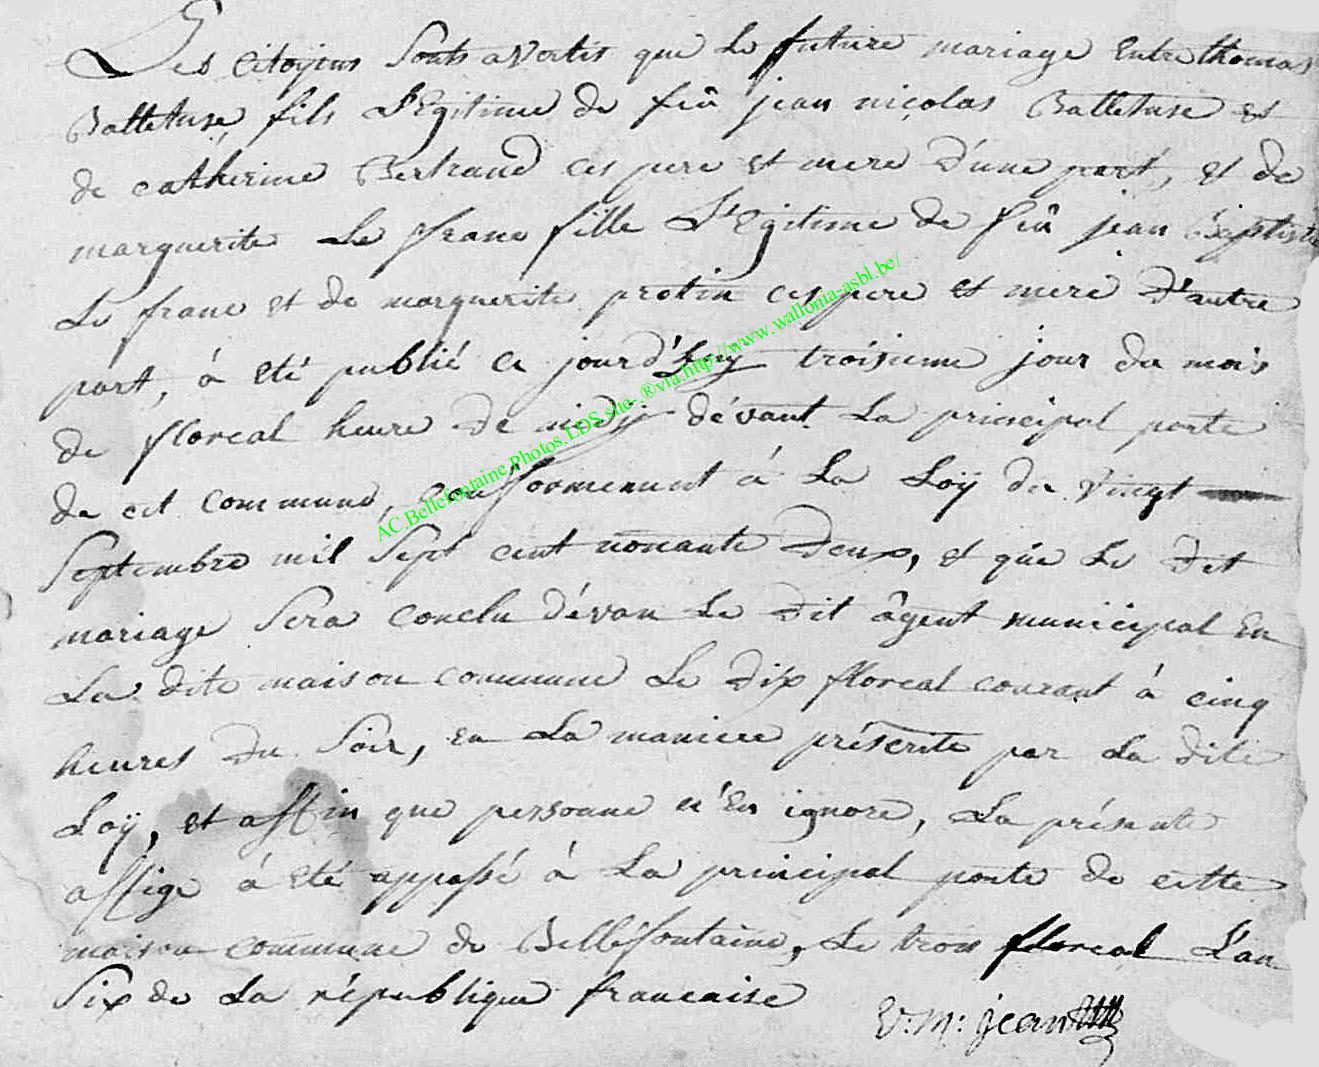 Les citoyens sonts avertis que le future mariage entre thomas
Balletuse fils L'Egitime de feû jean nicolas Balletuse et
de cathérine Bertrand ces pere et mere d'une part, et de
marguerite Le franc fille L'Egitime de feû jean Baptiste
Le franc et de marguerite protin ces pere et mere d'autre
part, à été publié ce jourd'huy troisieme jour du mois
de floreal heure de midÿ dévant La principal porte
de cet commune, conformement à La Loÿ du vingt
Septembre mil Sept cent nonante deux, et que Le dit
mariage Sera conclu dévan Le dit âgent municipal En
La dite maison commune Le dix floreal courant à cinq
heures du Soir, en La maniere préscrite par La dite
Loÿ, et affin que personne n'En ignore, La présente
affige à été appossé à La principal porte de cette
maison commune de Belléfontaine, Le trois floreal L'an
Six de La république francaise
V: M: jean
AC.Bellefontaine.Photos.LDS.site-.®via.http//www.wallonia-asbl.be/